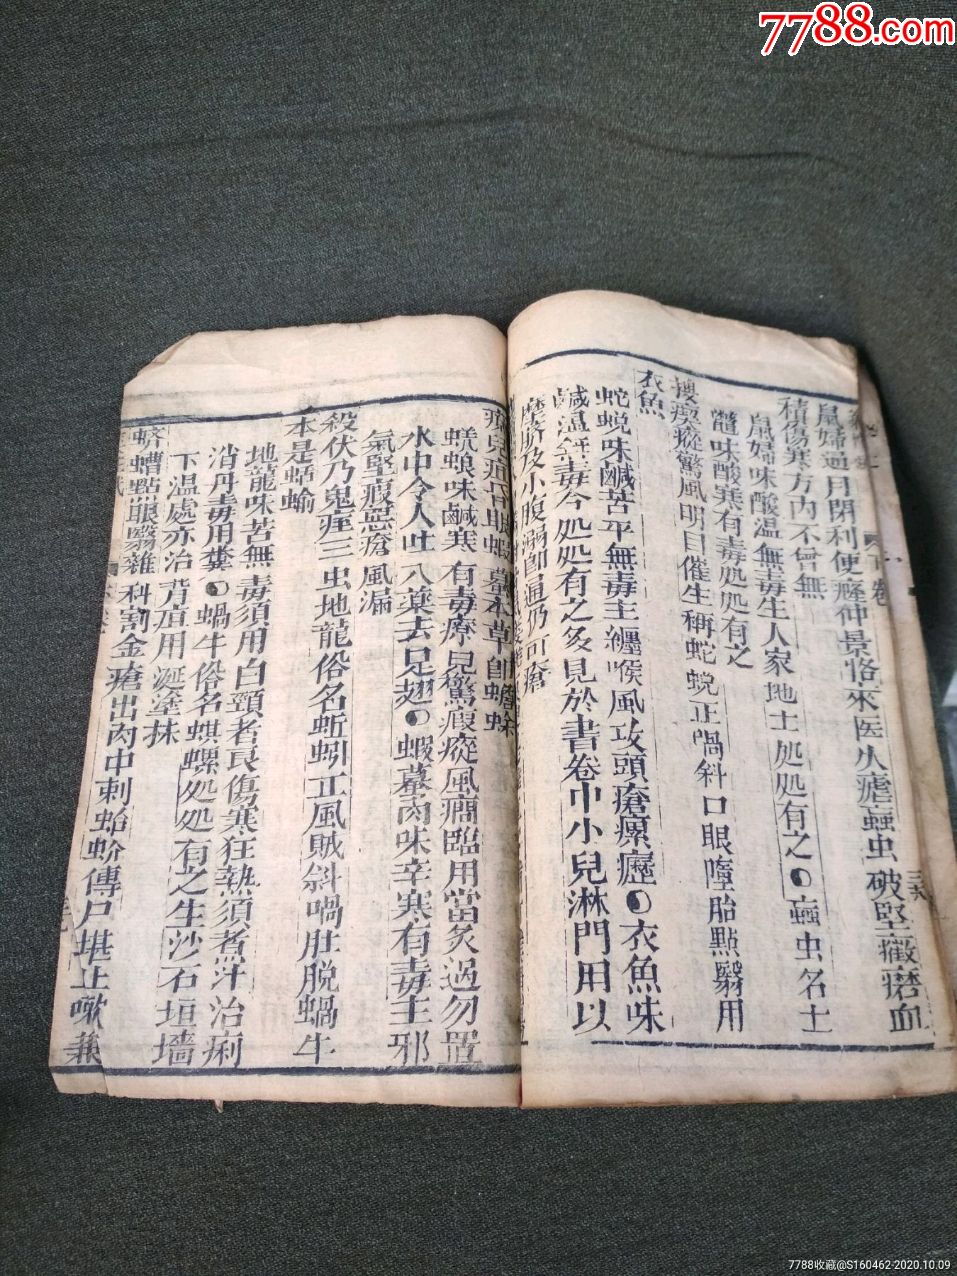 7788.com
鼠婦通月閉利便癃仲景恪來医久瘧䗪虫破堅癥瘩血
積傷寒方内不曾無
鼠婦味酸温無毒生人家地土処処有之䗪虫名土
鱉味酸寒有毒処処有之
搜瘈瘲驚風明目催生稱蛇蛻正喎斜口眼墮胎點翳用
衣魚
蛇蛻味鹹苦平無毒主纏喉風攻頭瘡瘰癧衣魚味
鹹温無毒今処処有之多見於書卷中小兒淋閉用以
摩臍及小腹溺即通仍可瘡
蜣蜋味鹹寒有毒療兒驚瘈瘲風癎臨用當炙過勿置
水中令人吐入藥去足翅蝦蟇肉味辛寒有毒主邪
氣堅瘕惡瘡風漏
殺伏乃鬼疰三虫地龍俗名蚯蚓正風賊斜喎肚脱蝸牛
本是蛞蝓
地龍味苦無毒須用白頸者良傷寒狂熱須煮汁治痢
消丹毒用糞蝸牛俗名蜞螺処処有之生沙石垣墻
下温處亦治背疽用涎塗抹
蠐螬點眼翳雜科割金瘡出肉中刺蛤蚧傳尸堪止嗽兼
7788收藏@S160462-2020.10.09